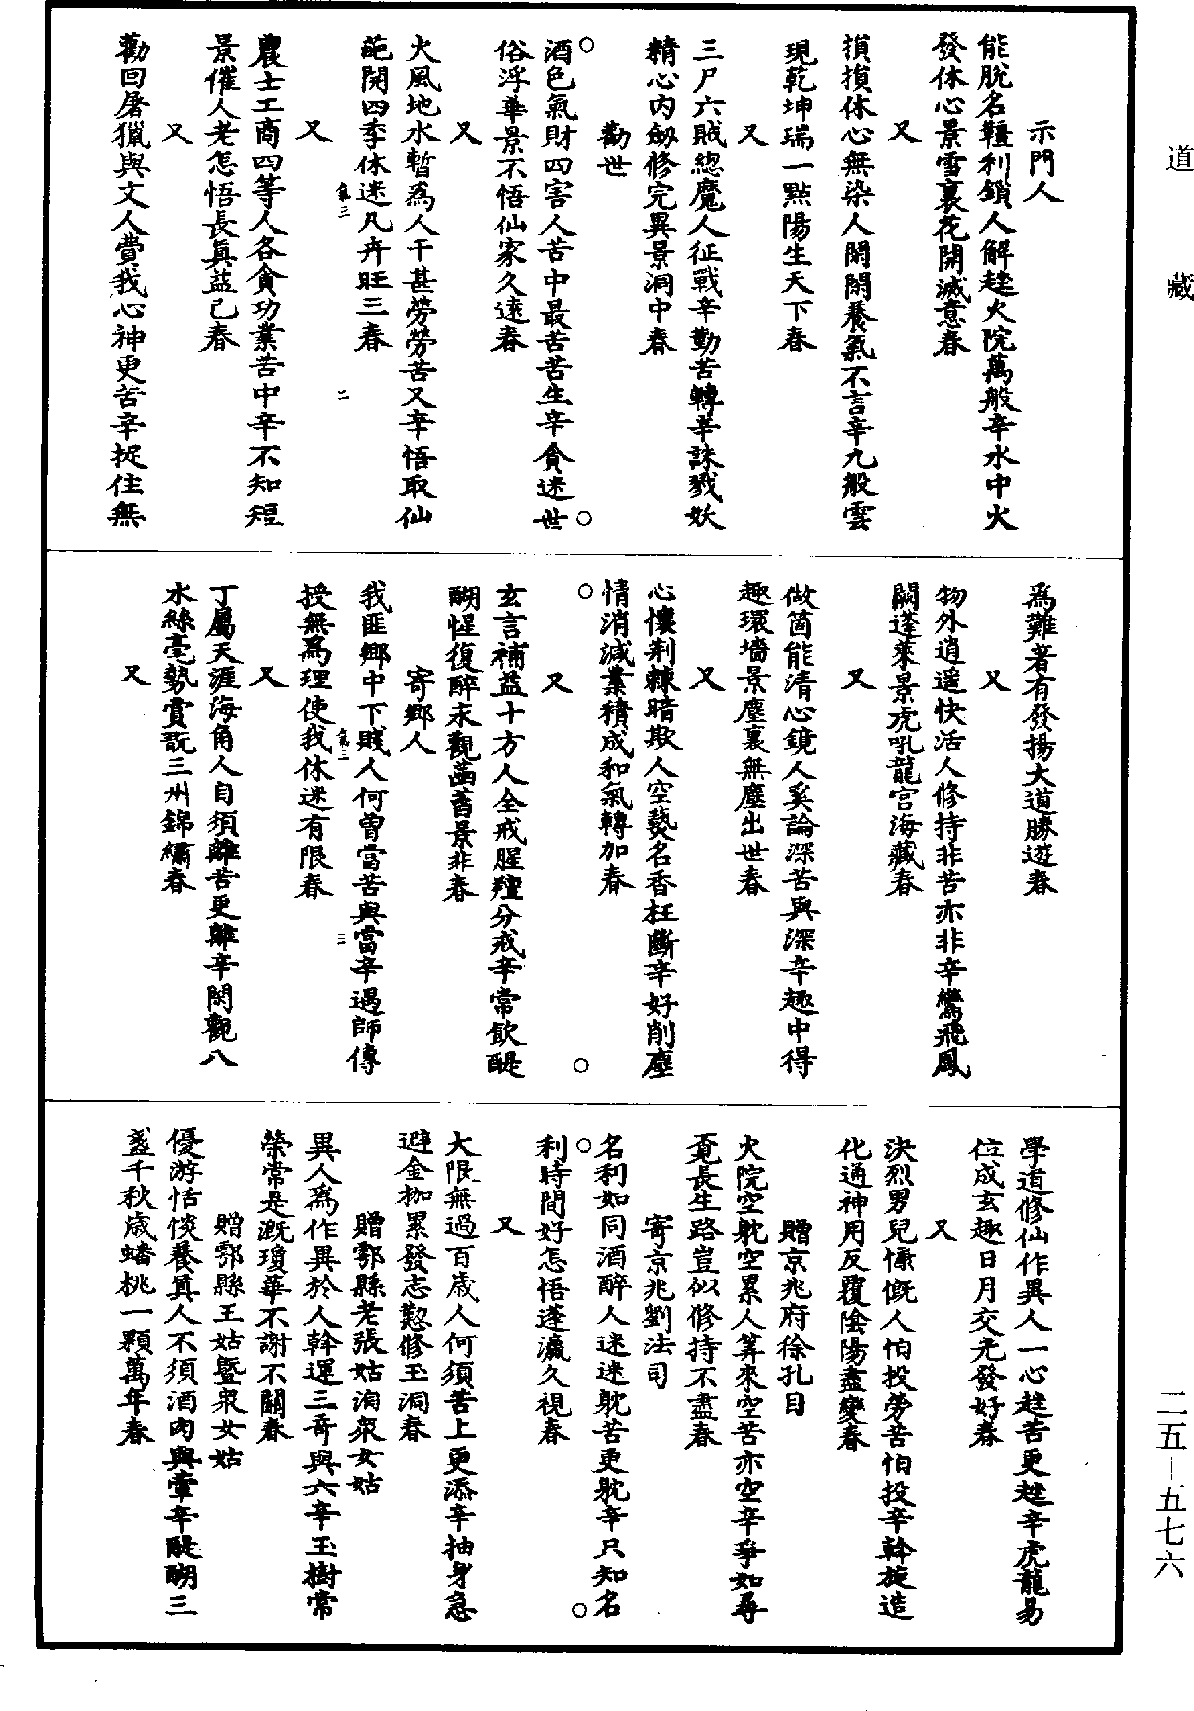 道藏
示門人
能脫名韁利鎖人解趖火院萬般辛水中火
發休心景雪裏花開滅意春
又
損損休心無染人閑閑養氣不言辛九般雲
現乾坤瑞一點陽生天下春
又
三尸六賊總魔人征戰辛勤苦轉辛誅戮妖
精心內劒修完異景洞中春
勸世
酒色氣財四害人苦中最苦苦生辛貪迷世
俗浮華景不悟仙家久遠春
又
火風地水暫爲人干甚勞勞苦又辛悟取仙
葩開四季休迷凡卉旺三春
又
農士工商四等人各貪功業苦中辛不知短
景催人老怎悟長真益己春
又
勸回屠獵與文人費我心神更苦辛捉住無
爲難著有發揚大道勝遊春
又
物外逍遥快活人修持非苦亦非辛鸞飛鳳
闕蓬萊景虎吼龍宮海藏春
又
做箇能清心鏡人奚論深苦與深辛趣中得
趣環墻景塵裏無塵出世春
又
心懷荆棘暗欺人空爇名香枉斷辛好削塵
情消減業積成和氣轉加春
又
玄言補益十方人全戒腥羶分戒辛常飲醍
醐惺復醉未觀菡萏景非春
寄鄉人
我匪鄉中下賤人何曾當苦與當辛遇師傳
授無爲理使我休迷有限春
又
丁屬天涯海角人自須離苦更離辛閑觀八
水絲毫勢賞翫三州錦繡春
又
學道修仙作異人一心趖苦更趖辛虎龍易
位成玄趣日月交光發好春
又
決烈男兒慷慨人怕投勞苦怕投辛斡旋造
化通神用反覆陰陽盡變春
贈京兆府徐孔目
火院空躭空累人筭來空苦亦空辛爭如尋
覓長生路豈似修持不盡春
寄京兆劉法司
名利如同酒醉人迷迷躭苦更躭辛只知名
利時間好怎悟蓬瀛久視春
又
大限無過百歲人何須苦上更添辛抽身急
避金枷累發志懃修玉洞春
贈鄠縣老張姑洎衆女姑
異人爲作異於人斡運三奇與六辛玉樹常
榮常是翫瓊華不謝不關春
贈鄠縣王姑暨衆女姑
優游恬惔養真人不須酒肉與葷辛醍醐三
盞千秋歲蟠桃一顆萬年春
二五—五七六